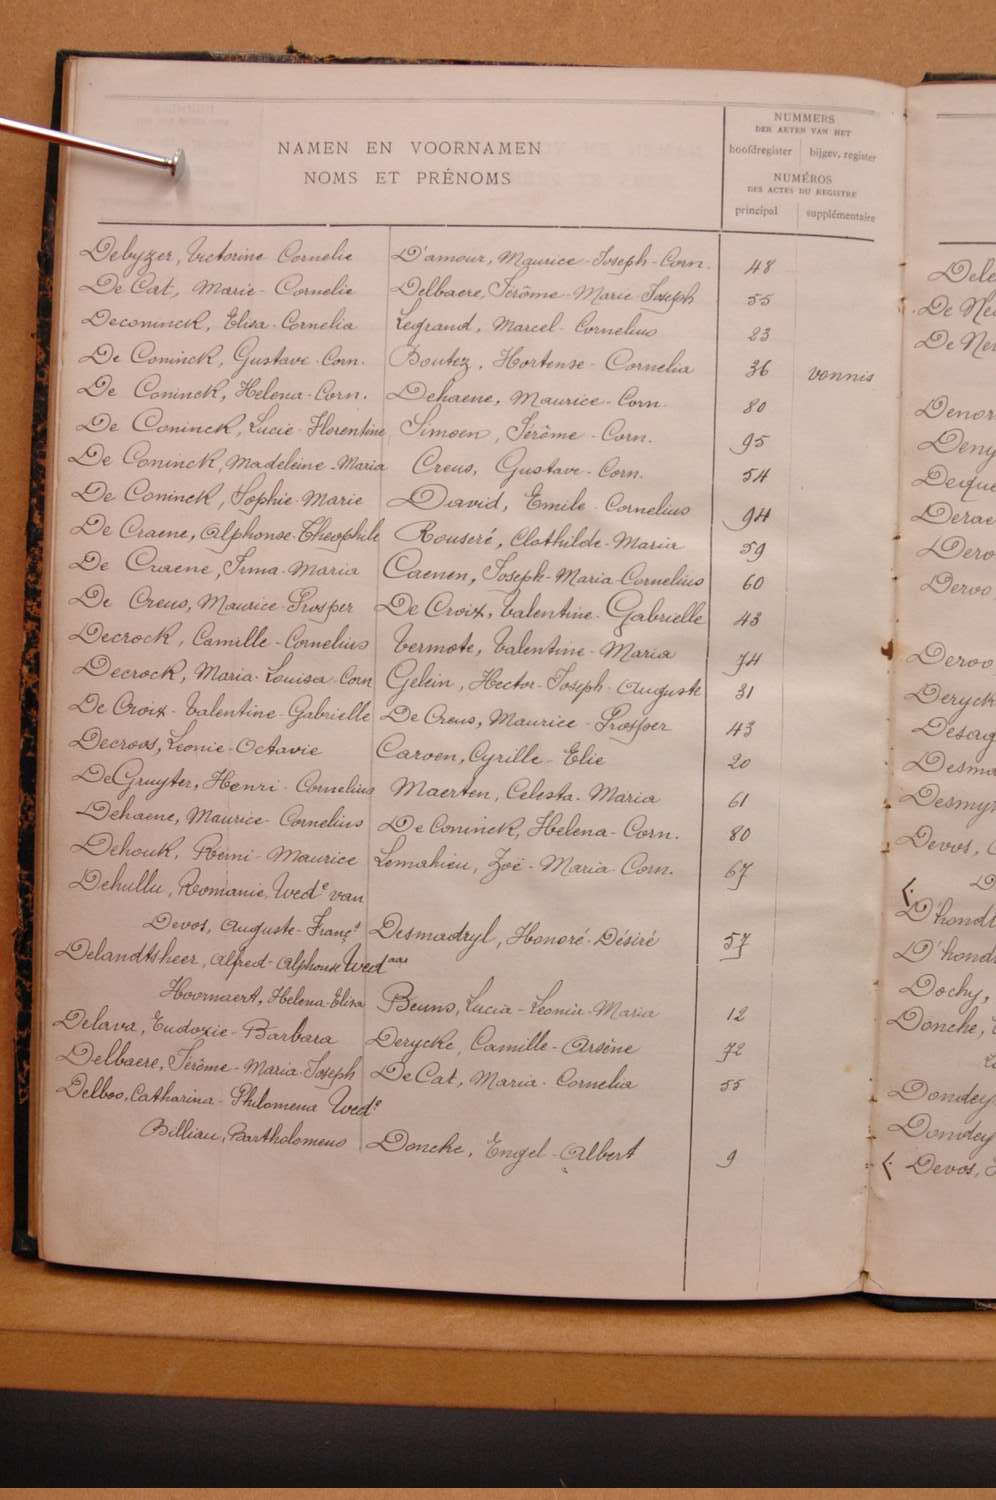 NAMEN EN VOORNAMEN
NOMS ET PRÉNOMS
NUMMERS
DER AKTEN VAN HET
hoofdregister bijgev. register
NUMÉROS
DES ACTES DU REGISTRE
principal supplémentaire
Debyzer, Victorine Cornelie D'amour, Maurice-Joseph-Corn. 48
De Cat, Marie-Cornelie Delbaere, Jérôme-Marie-Joseph 55
Deconinck, Elisa-Cornelia Legrand, Marcel-Cornelius 23
De Coninck, Gustave-Corn. Boutez, Hortense-Cornelia 36 vonnis
De Coninck, Helena-Corn. Dehaene, Maurice-Corn. 80
De Coninck, Lucie-Florentine Simoen, Jérôme-Corn. 95
De Coninck, Madeleine-Maria Creus, Gustave-Corn. 54
De Coninck, Sophie-Marie David, Emile-Cornelius 94
De Craene, Alphonse-Theophile Rouseré, Clothilde-Maria 59
De Craene, Irma-Maria Caenen, Joseph-Maria-Cornelius 60
De Creus, Maurice-Prosper De Croix, Valentine-Gabrielle 43
Decrock, Camille-Cornelius Vermote, Valentine-Maria 74
Decrock, Maria-Louisa-Corn Gelein, Hector-Joseph-Auguste 31
De Croix-Valentine-Gabrielle De Creus, Maurice-Prosper 43
Decroos, Leonie-Octavie Carven, Cyrille-Elie 20
De Gruyter, Henri-Cornelius Maerten, Celesta-Maria 61
Dehaene, Maurice-Cornelius De Coninck, Helena-Corn. 80
Dehouk, Remi-Maurice Lemahieu, Zoë-Maria Corn. 67
Dehullu, Romanie, Wedᵉ van
Devos, Auguste-Françs Desmadryl, Honoré-Désiré 57
Delandtsheer, Alfred-Alphonse Wedaar
Hoornaert, Helena-Elisa Beuns, Lucia-Leonia-Maria 12
Delava, Eudoxie-Barbara Derycke, Camille-Arsène 72
Delbaere, Jérôme-Maria-Joseph De Cat, Maria-Cornelia 55
Delboo, Catharina-Philomena Wedᵉ
Billiau, Bartholomeus Doncke, Engel-Albert 9
De Ne
Denor
Deny
Deque
Derae
Dero
Deroo
Deroo
Deryck
Desag
Desma
Desmyt
Devos,
D'hondt
D'hond
Dochy,
Doncke,
Dondey
Dondey
Devos,